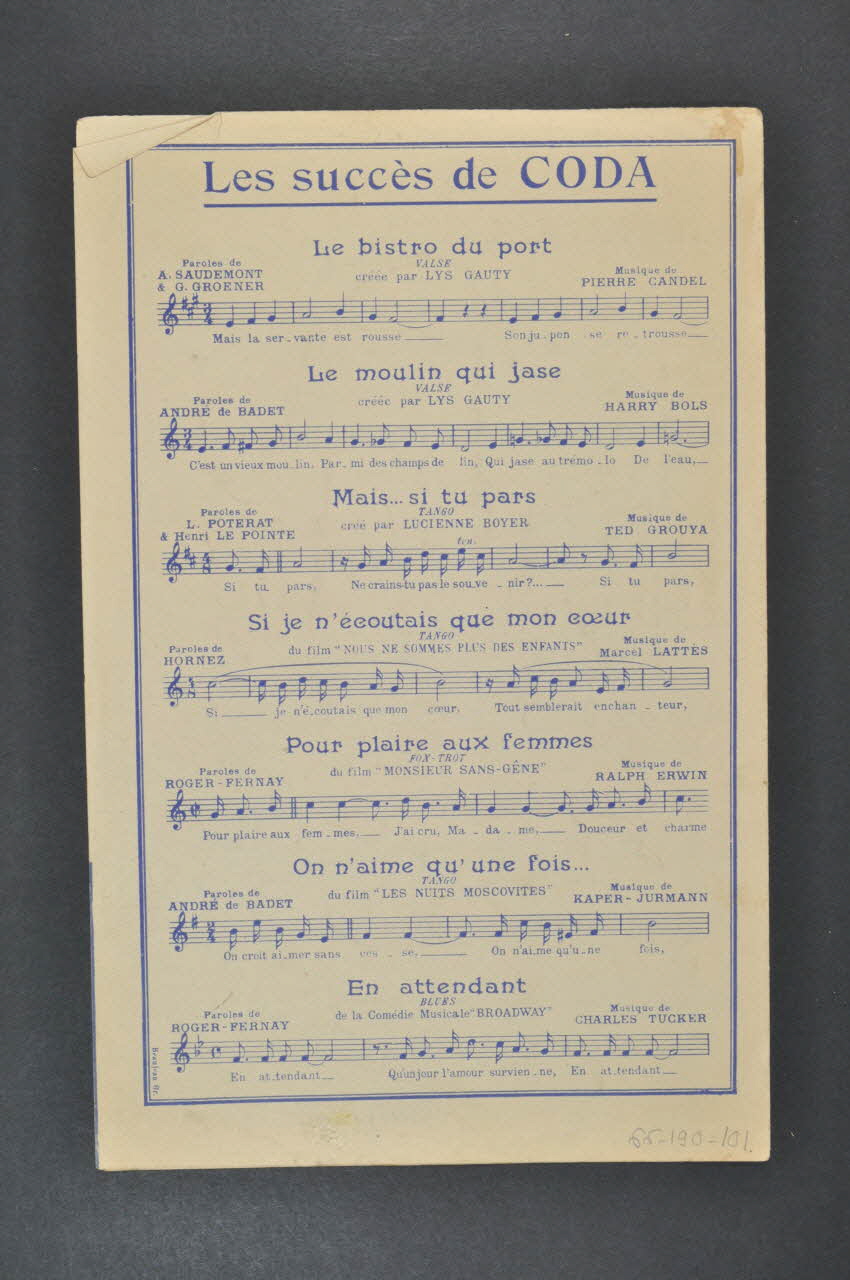 Les succès de CODA
Le bistro du port
VALSE
créée par LYS GAUTY
Paroles de
A. SAUDEMONT
& G. GROENER
Musique de
PIERRE CANDEL
Mais la ser_vante est rousse____ Son ju_pon se re_trousse____
Le moulin qui jase
VALSE
créée par LYS GAUTY
Paroles de
ANDRÉ de BADET
Musique de
HARRY BOLS
C'est un vieux mou_lin, Par_mi des champs de lin, Qui jase au trémo_lo De l'eau,__
Mais... si tu pars
TANGO
créé par LUCIENNE BOYER
Paroles de
L. POTERAT
& Henri LE POINTE
Musique de
TED GROUYA
ten.
Si tu pars, Ne crains-tu pas le sou_ve_nir?...___ Si tu pars,
Si je n'écoutais que mon cœur
TANGO
du film "NOUS NE SOMMES PLUS DES ENFANTS"
Paroles de
HORNEZ
Musique de
Marcel LATTÈS
Si____ je n'é_coutais que mon cœur, Tout semblerait enchan_teur,
Pour plaire aux femmes
FOX-TROT
du film "MONSIEUR SANS-GÊNE"
Paroles de
ROGER-FERNAY
Musique de
RALPH ERWIN
Pour plaire aux fem_mes,___ J'ai cru, Ma_da_me,___ Douceur et charme
On n'aime qu'une fois...
TANGO
du film "LES NUITS MOSCOVITES"
Paroles de
ANDRÉ de BADET
Musique de
KAPER-JURMANN
On croit ai_mer sans ces_se,____ On n'ai_me qu'u_ne fois,
En attendant
BLUES
de la Comédie Musicale "BROADWAY"
Paroles de
ROGER-FERNAY
Musique de
CHARLES TUCKER
En at_tendant__ Qu'un jour l'amour survien_ne, En at_tendant___
66-190-101.